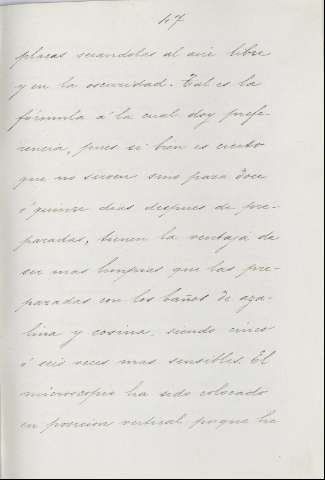 47
placas secandolas al aire libre
y en la oscuridad. Tal es la
fórmula á la cual doy prefe-
rencia, pues si bien es cierto
que no sirven sino para doce
ó quince dias despues de pre-
paradas, tienen la ventaja de
ser mas limpias que las pre-
paradas con los baños de aza-
lina y eosina, siendo cinco
ó seis veces mas sensibles. El
microscopio ha sido colocado
en posicion vertical porque he